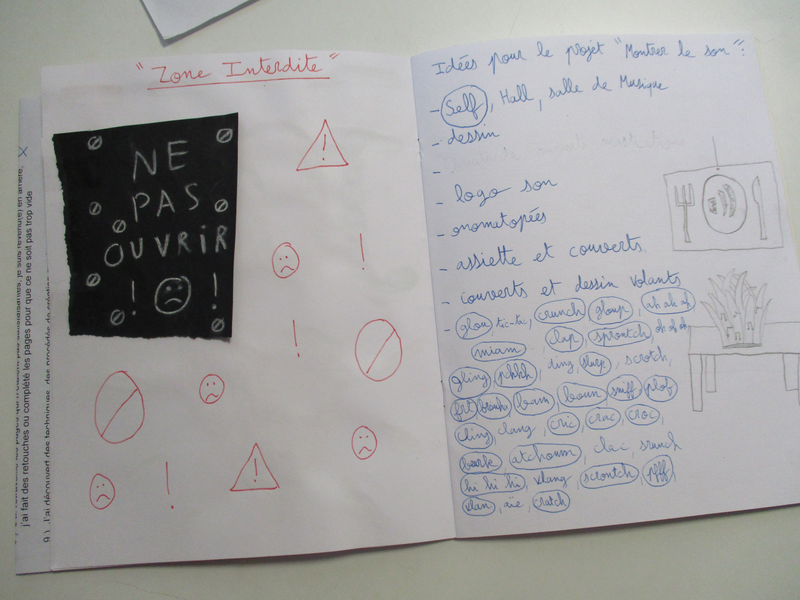 "Zone Interdite"
NE
PAS
OUVRIR
! !
!
!
!
!
!
!
Idées pour le projet "Montrer le son":
- Self, Hall, salle de Musique
- dessin
-
- logo son
- onomatopées
- assiette et couverts
- couverts et dessin volants
- glou, tic-tac, crunch, gloup, ah ah ah
miam, clap, sprontch, oh oh oh
gling, pfhhh, ding, slurp, scrotch,
frt, brouh, bam, boum, sniff, plof
cling, clang, cric, crac, croc,
beurk, atchoum, clac, srunch
hi hi hi, vlang, scrontch, pfff,
vlan, aïe, cratch
j'ai fait des retouches ou complété les pages pour que ce ne soit pas trop vide
9) J'ai découvert des techniques, des procédés de